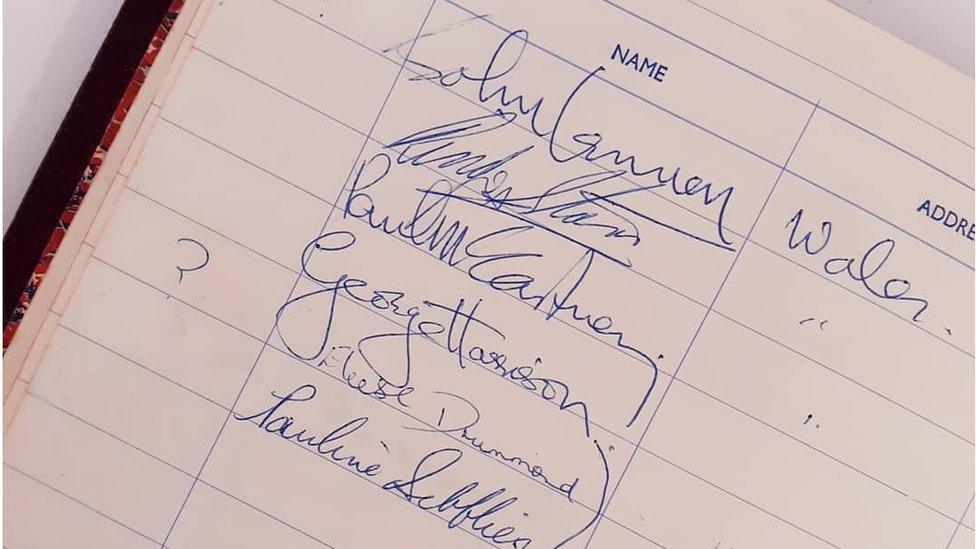 NAME ADDRE
John Lennon Wales.
Ringo Starr "
Paul McCartney "
George Harrison
? Elise Drummond
Pauline